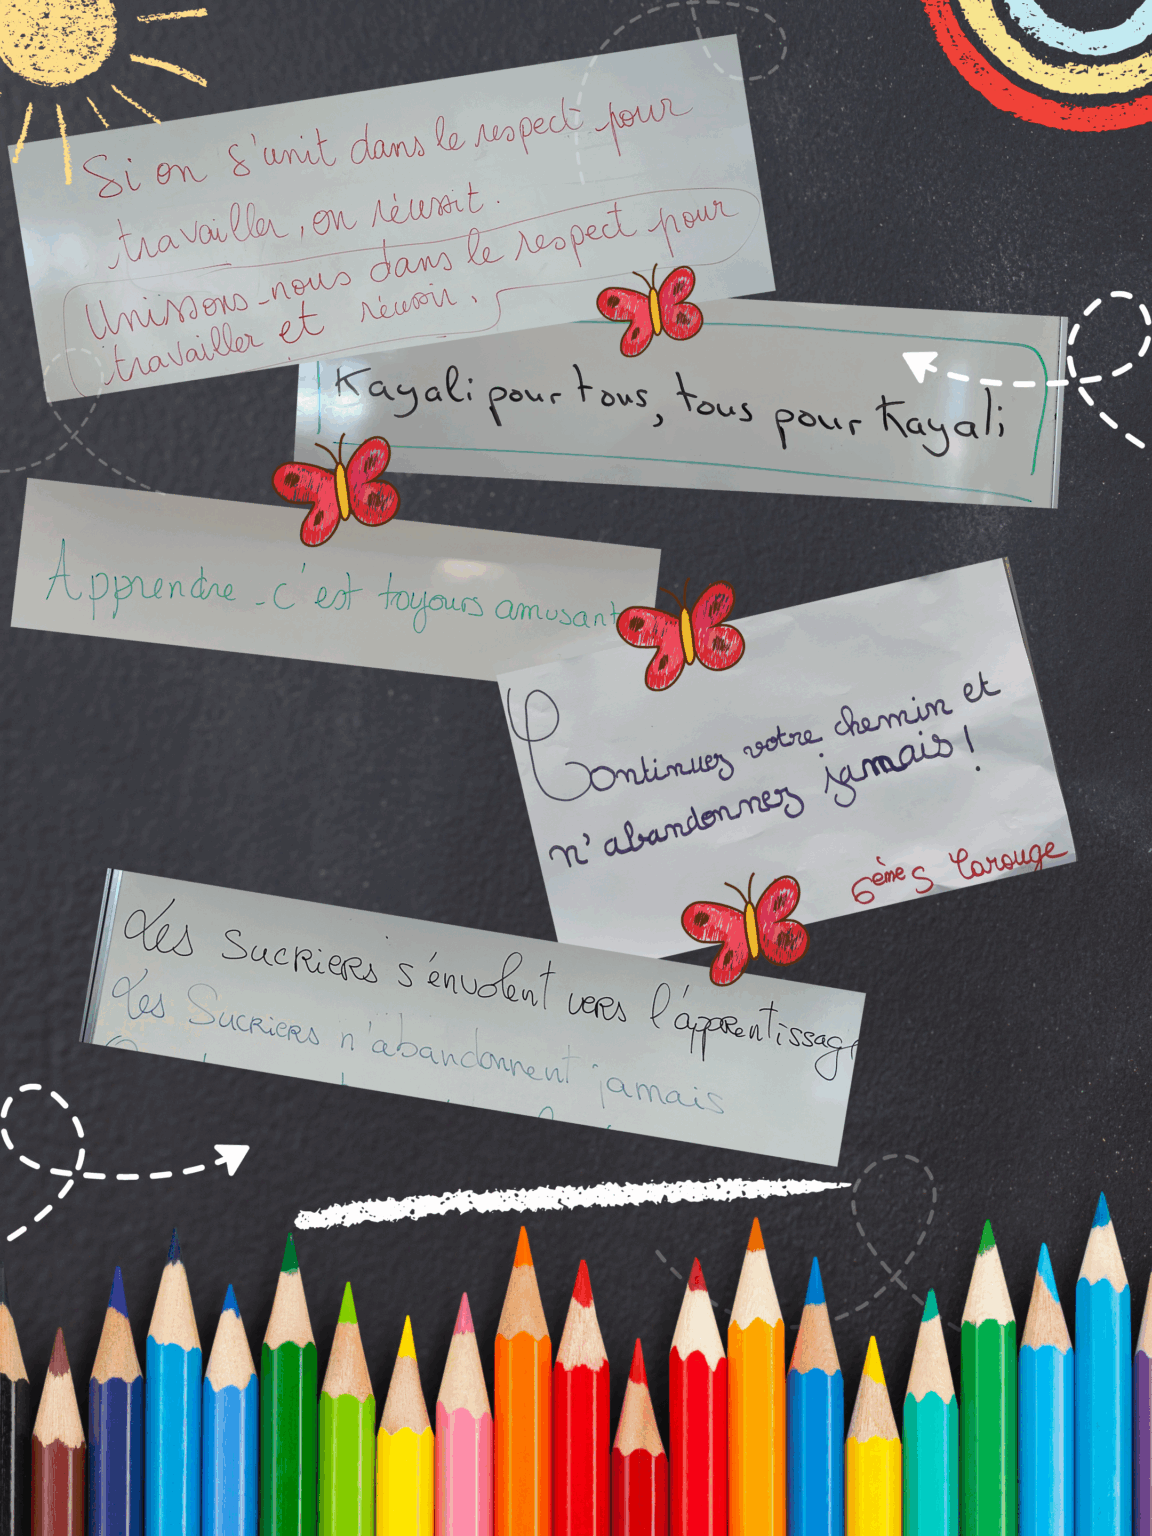 Si on s'unit dans le respect pour
travailler, on réussit.
Unissons-nous dans le respect pour
travailler et réussir.
Kayali pour tous, tous pour Kayali
Apprendre c'est toujours amusant
Continuez votre chemin et
n'abandonnez jamais !
6èmes Carouge
Les Sucriers s'énvolent vers l'apprentissage
Les Sucriers n'abandonnent jamais